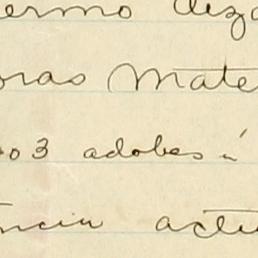 ermo diza
oras mate
o3 adobes ú
ncia actu